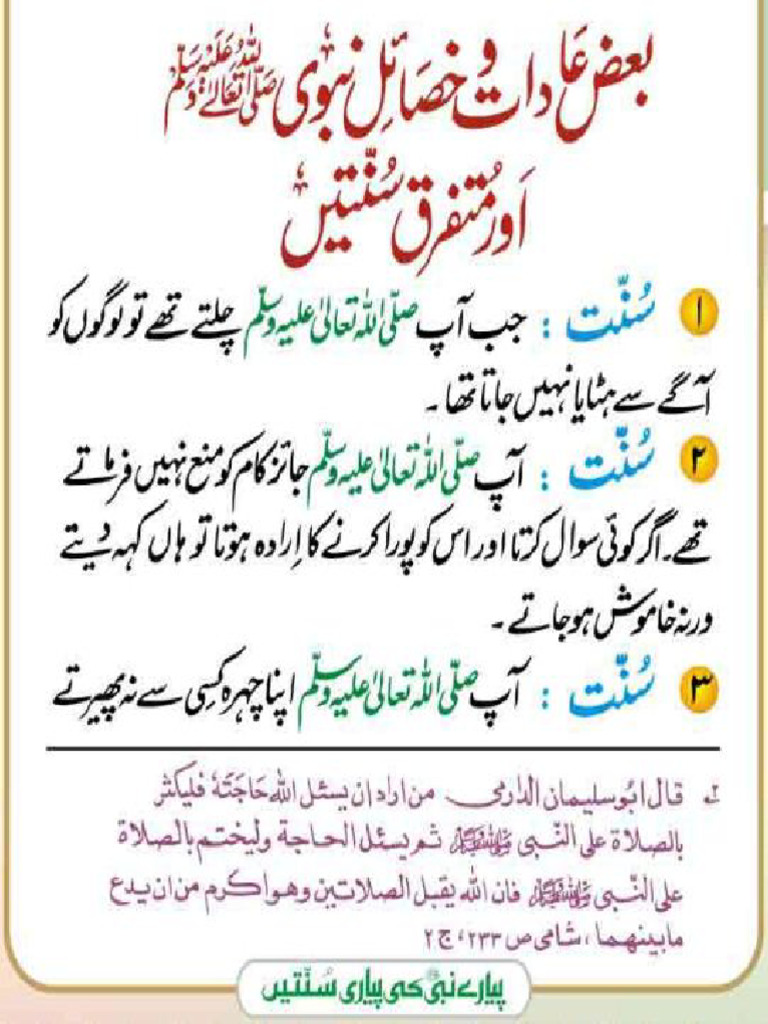 بعض عادات و خصائلِ نبوی صَلَّی اللہُ تَعَالیٰ عَلَیْہِ وَسَلَّم
اَور مُتفرق سُنّتیں
۱ سُنّت : جب آپ صلّی اللہ تعالیٰ علیہ وسلّم چلتے تھے تو لوگوں کو
آگے سے ہٹایا نہیں جاتا تھا ۔
۲ سُنّت : آپ صلّی اللہ تعالیٰ علیہ وسلّم جائز کام کو منع نہیں فرماتے
تھے۔ اگر کوئی سوال کرتا اور اس کو پورا کرنے کا اِرادہ ہوتا تو ہاں کہہ دیتے
ورنہ خاموش ہو جاتے ۔
۳ سُنّت : آپ صلّی اللہ تعالیٰ علیہ وسلّم اپنا چہرہ کسِی سے نہ پھیرتے
لہ قال ابو سلیمان الدارمی من اراد ان یسئل اللہ حَاجَتَہٗ فلیکثر
بالصلاۃ علی النّبی ﷺ ثم یسئل الحاجۃ ولیختم بالصلاۃ
علی النّبی ﷺ فان اللہ یقبل الصلاتین وھو اکرم من ان یدع
ما بینھما ، شامی ص ۲۳۳ ، ج ۲
پیارے نبیؐ کی پیاری سُنّتیں